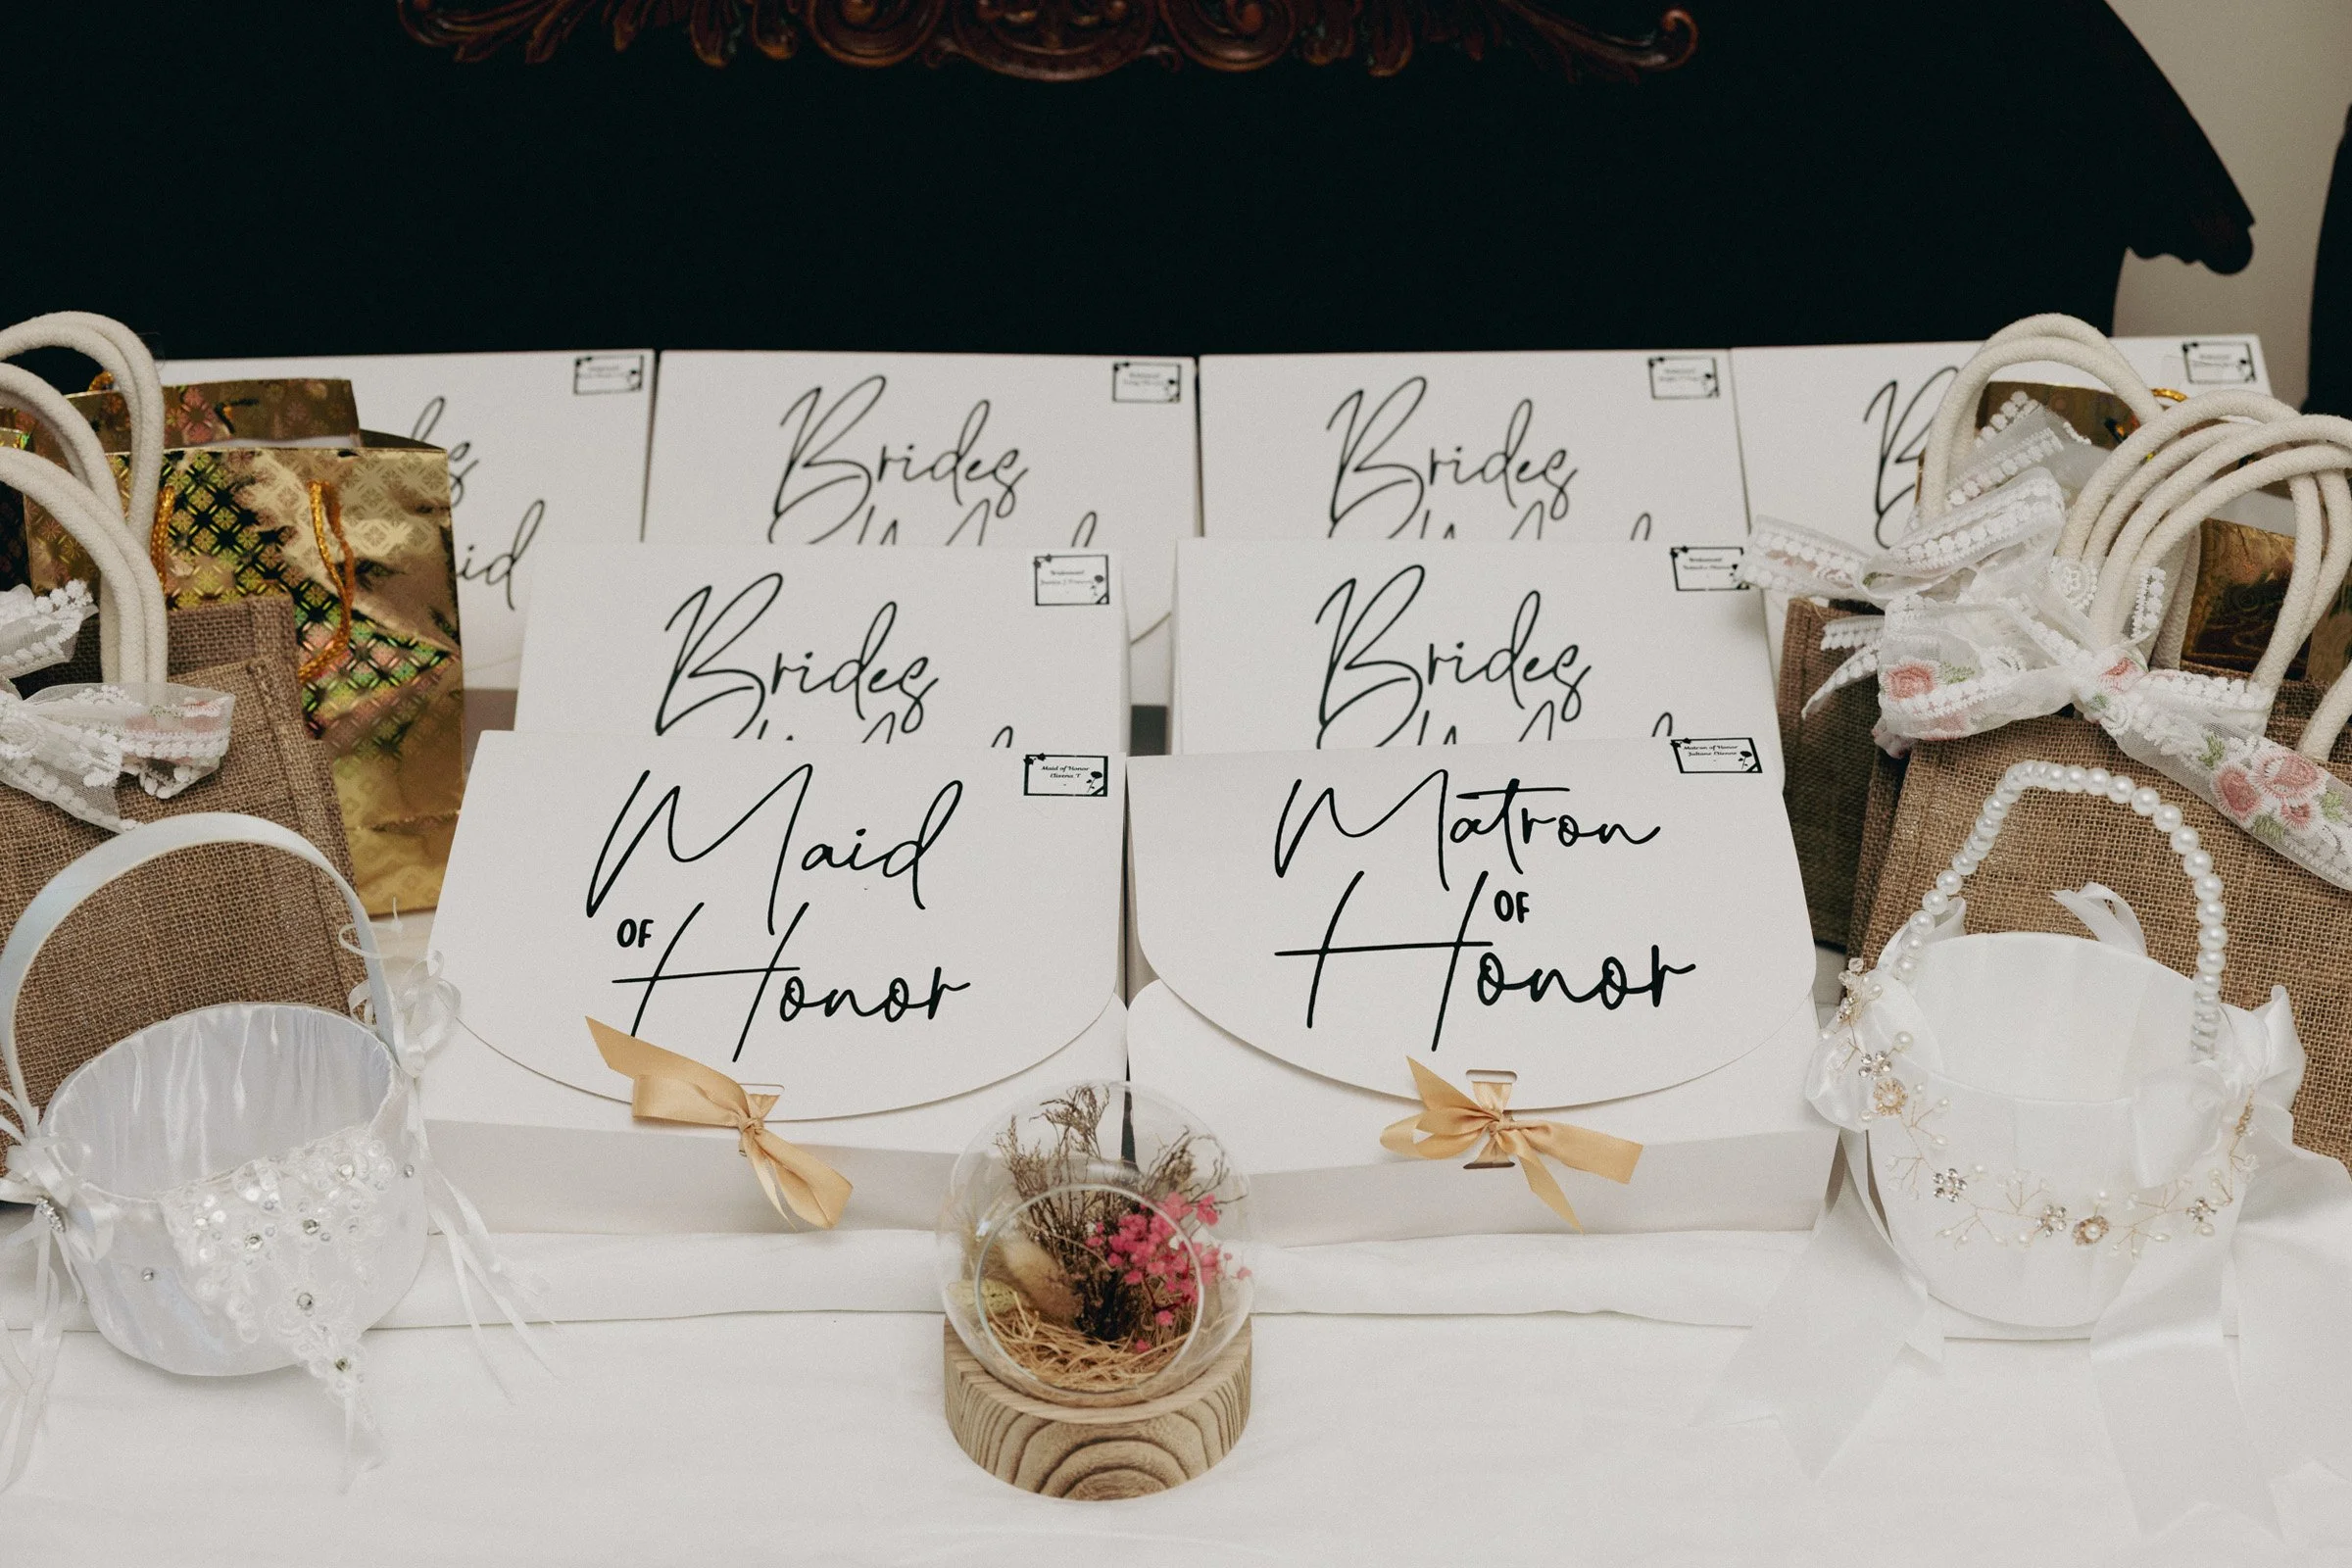 s
id
Brides
Brides
B
Brides
Bridesmaid
Brides
Maid
OF
Honor
Maid of Honor
Matron
OF
Honor
Matron of Honor